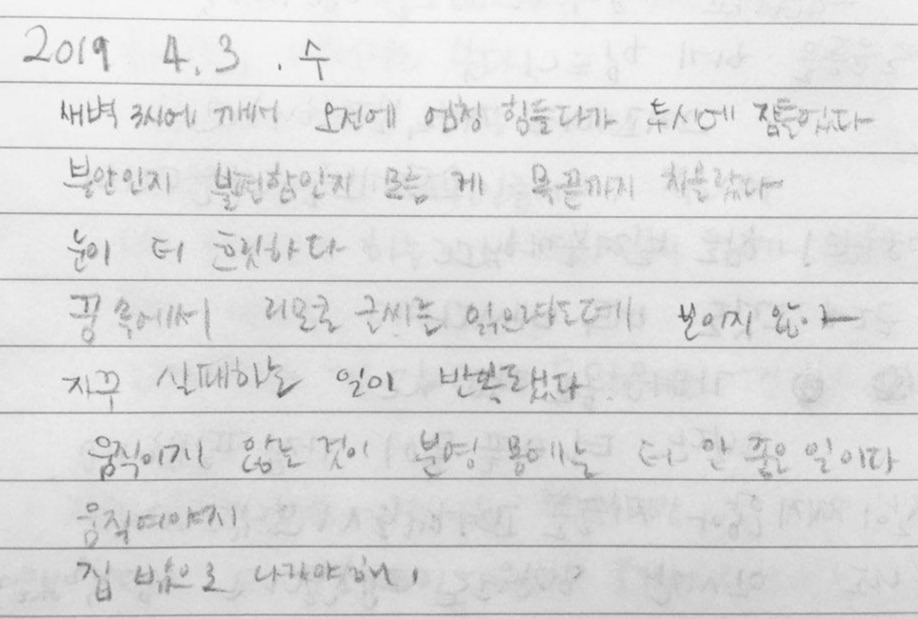 2019 4.3.수
새벽 3시에 깨서 오전에 엄청 힘들다가 두시에 잠들었다
불안인지 불편함인지 모를 게 목끝까지 차올랐다
눈이 더 흐릿하다
꿈 속에서 리모콘 글씨를 읽으려는데 보이지 않아
자꾸 실패하는 일이 반복됐다
움직이지 않는 것이 분명 몸에는 더 안 좋은 일이다
움직여야지
집 밖으로 나가야해.